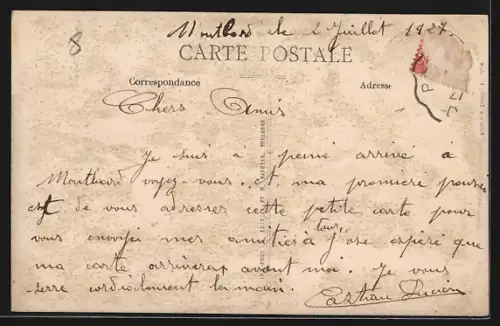 Montbard le 2 Juillet 1927.
8
CARTE POSTALE
Correspondance
Adresse
Chers Amis
Je suis à peine arrivé à
Montbard voyez-vous et ma première pensée
est de vous adresser cette petite carte pour
vous envoyer mes amitiés à tous, J'ose espéré que
ma carte arriveras avant moi. Je vous
serre cordialement la main.
Lucien